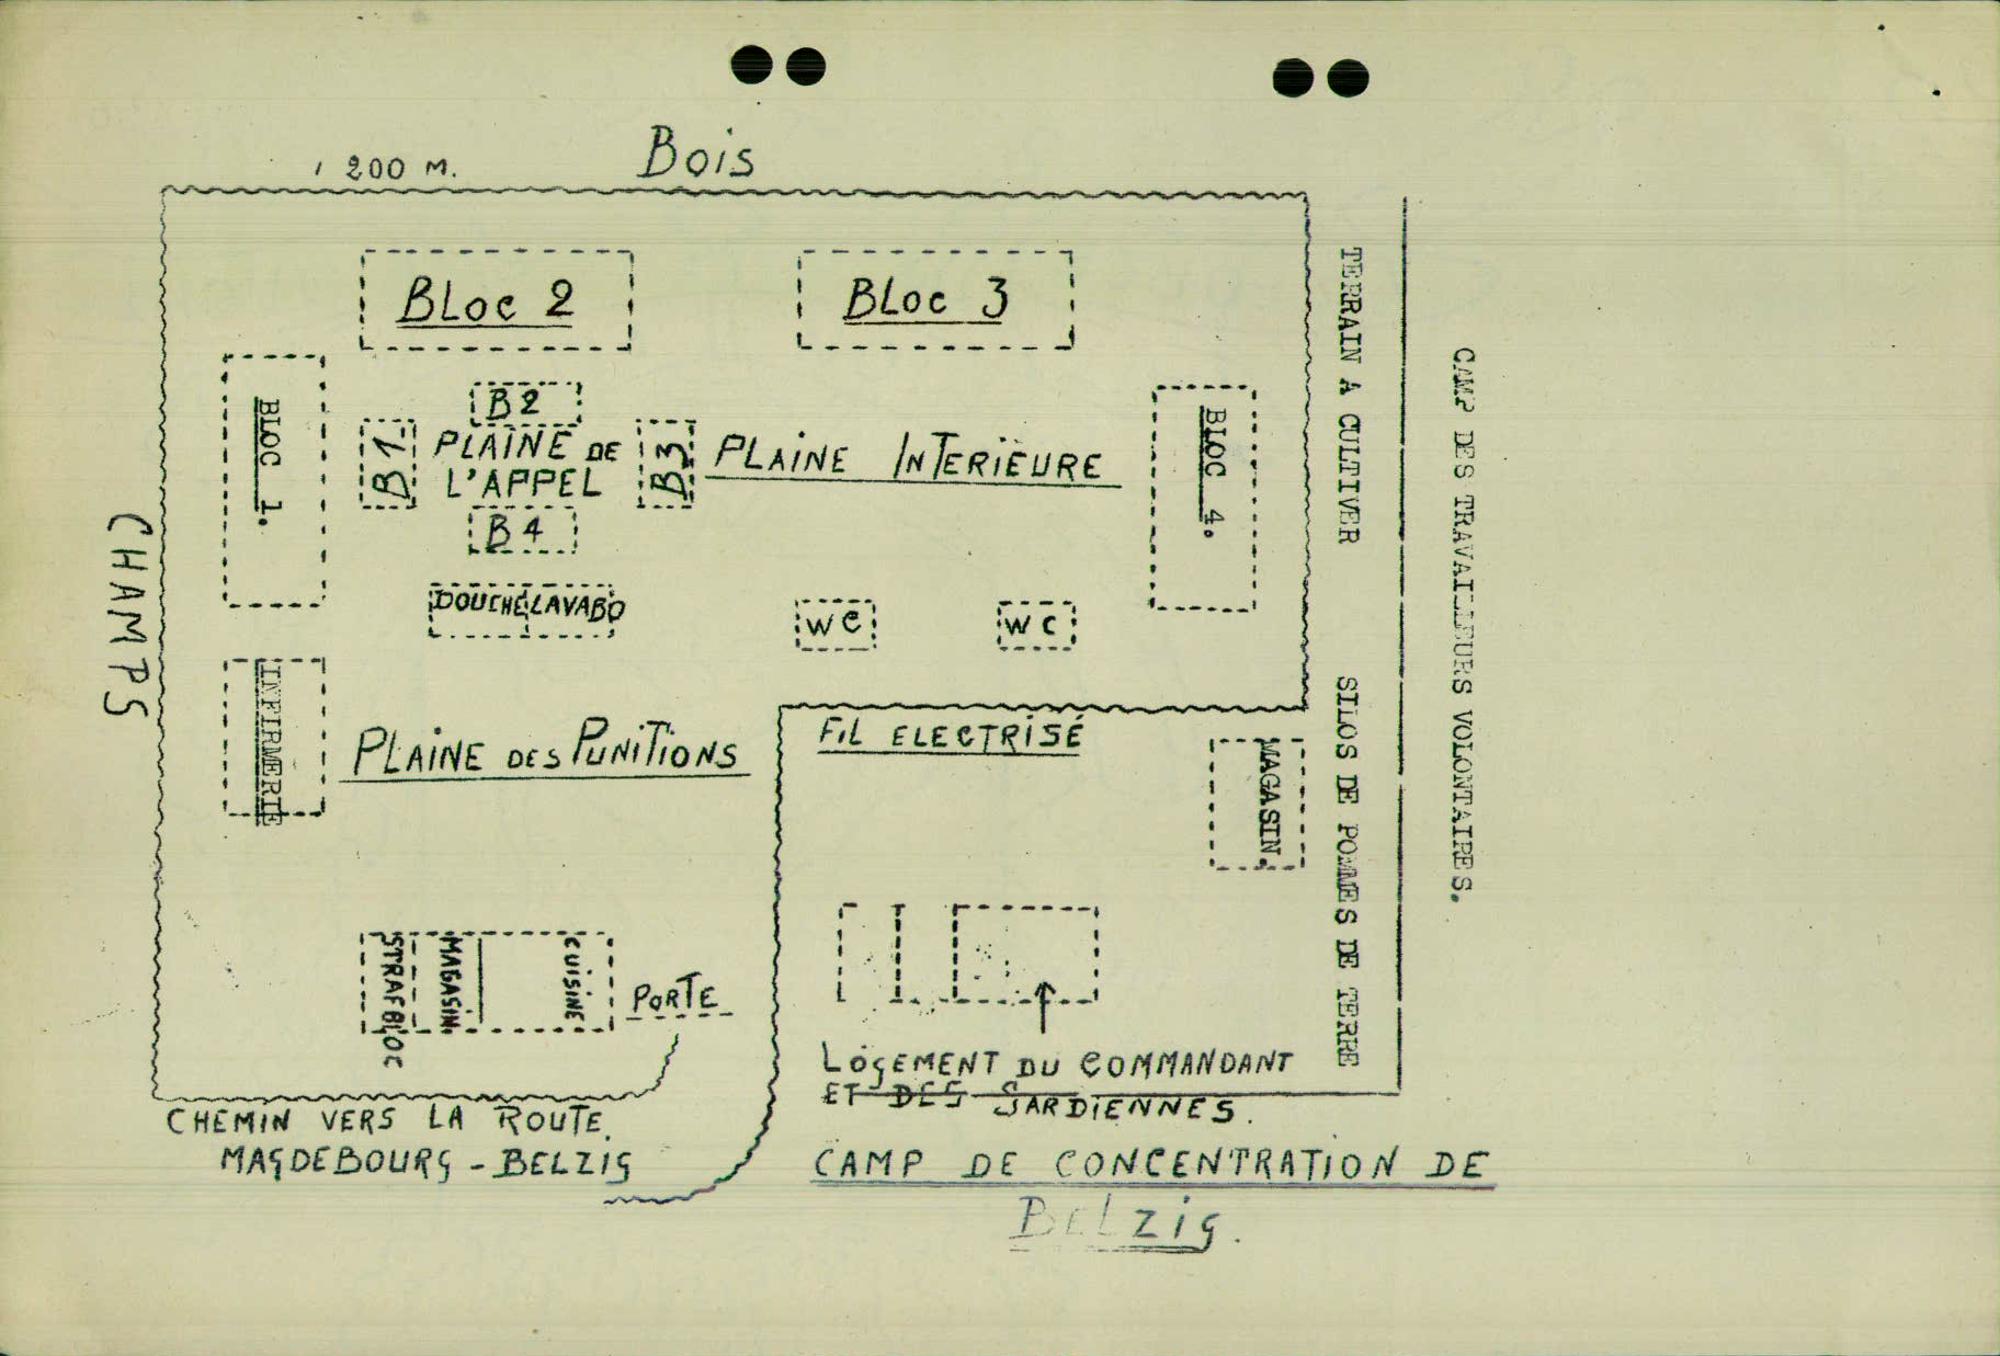 200 M.
Bois
BLoc 2
BLoc 3
BLOC 1.
B2
B1
PLAINE DE
L'APPEL
B3
PLAINE INTERIEURE
BLOC 4.
B4
DOUCHE LAVABO
WC
WC
CHAMPS
INFIRMERIE
PLAINE DES PUNITIONS
FIL ELECTRISÉ
MAGASIN.
TERRAIN A CULTIVER
SILOS DE POMMES DE TERRE
CAMP DES TRAVAILLEURS VOLONTAIRES.
STRAFBLOC
MAGASIN.
CUISINE
PORTE
LOGEMENT DU COMMANDANT
ET DES GARDIENNES.
CHEMIN VERS LA ROUTE.
MAGDEBOURG - BELZIG
CAMP DE CONCENTRATION DE
BELZIG.